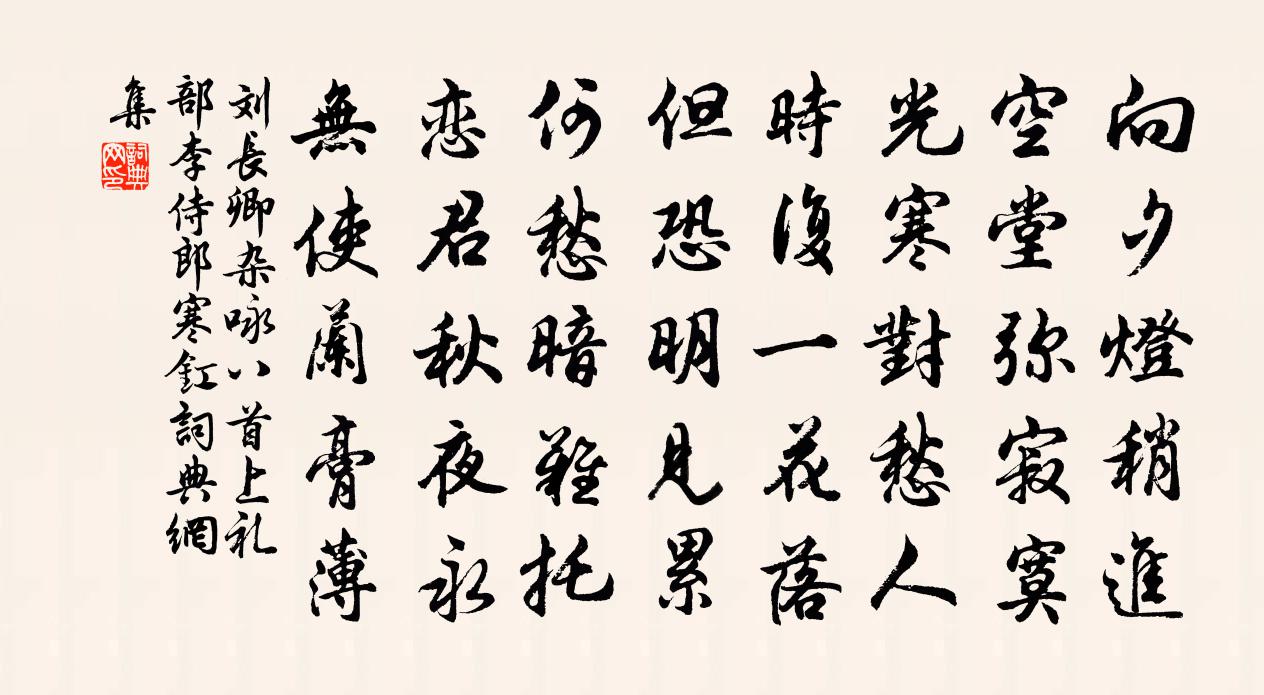 向夕燈稍進
空堂弥寂寞
光寒對愁人
時復一花落
但恐明見累
何愁暗難托
恋君秋夜永
無使蘭膏薄
刘長卿杂咏八首上礼
部李侍郎寒釭詞典網
集
詞典網印